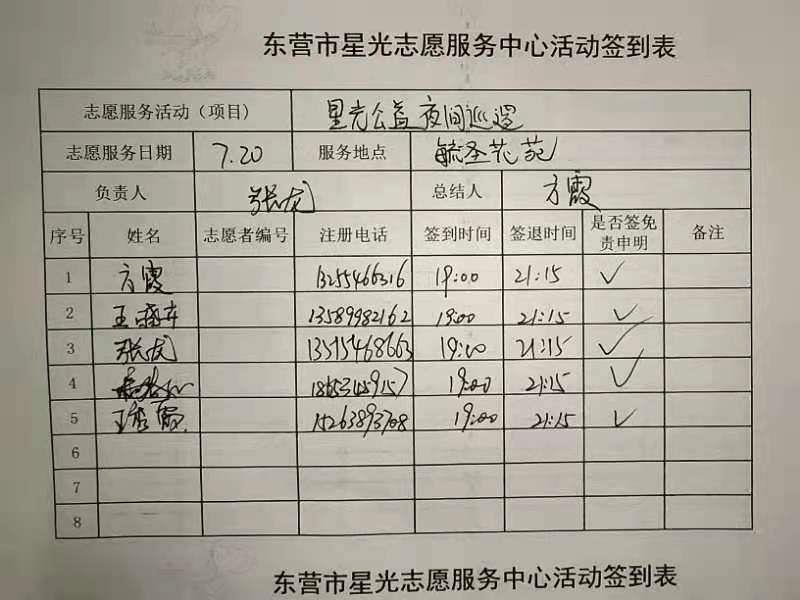 东营市星光志愿服务中心活动签到表
志愿服务活动（项目） 星光公益夜间巡逻
志愿服务日期 7.20 服务地点 毓圣花苑
负责人 张龙 总结人 方霞
序号 姓名 志愿者编号 注册电话 签到时间 签退时间 是否签免责申明 备注
1 方霞 13255466316 19:00 21:15 ✓
2 王 13589982162 19:00 21:15 ✓
3 张龙 13515468663 19:00 21:15 ✓
4 19:00 21:15 ✓
5 王秀霞 15263893708 19:00 21:15 ✓
6
7
8
东营市星光志愿服务中心活动签到表